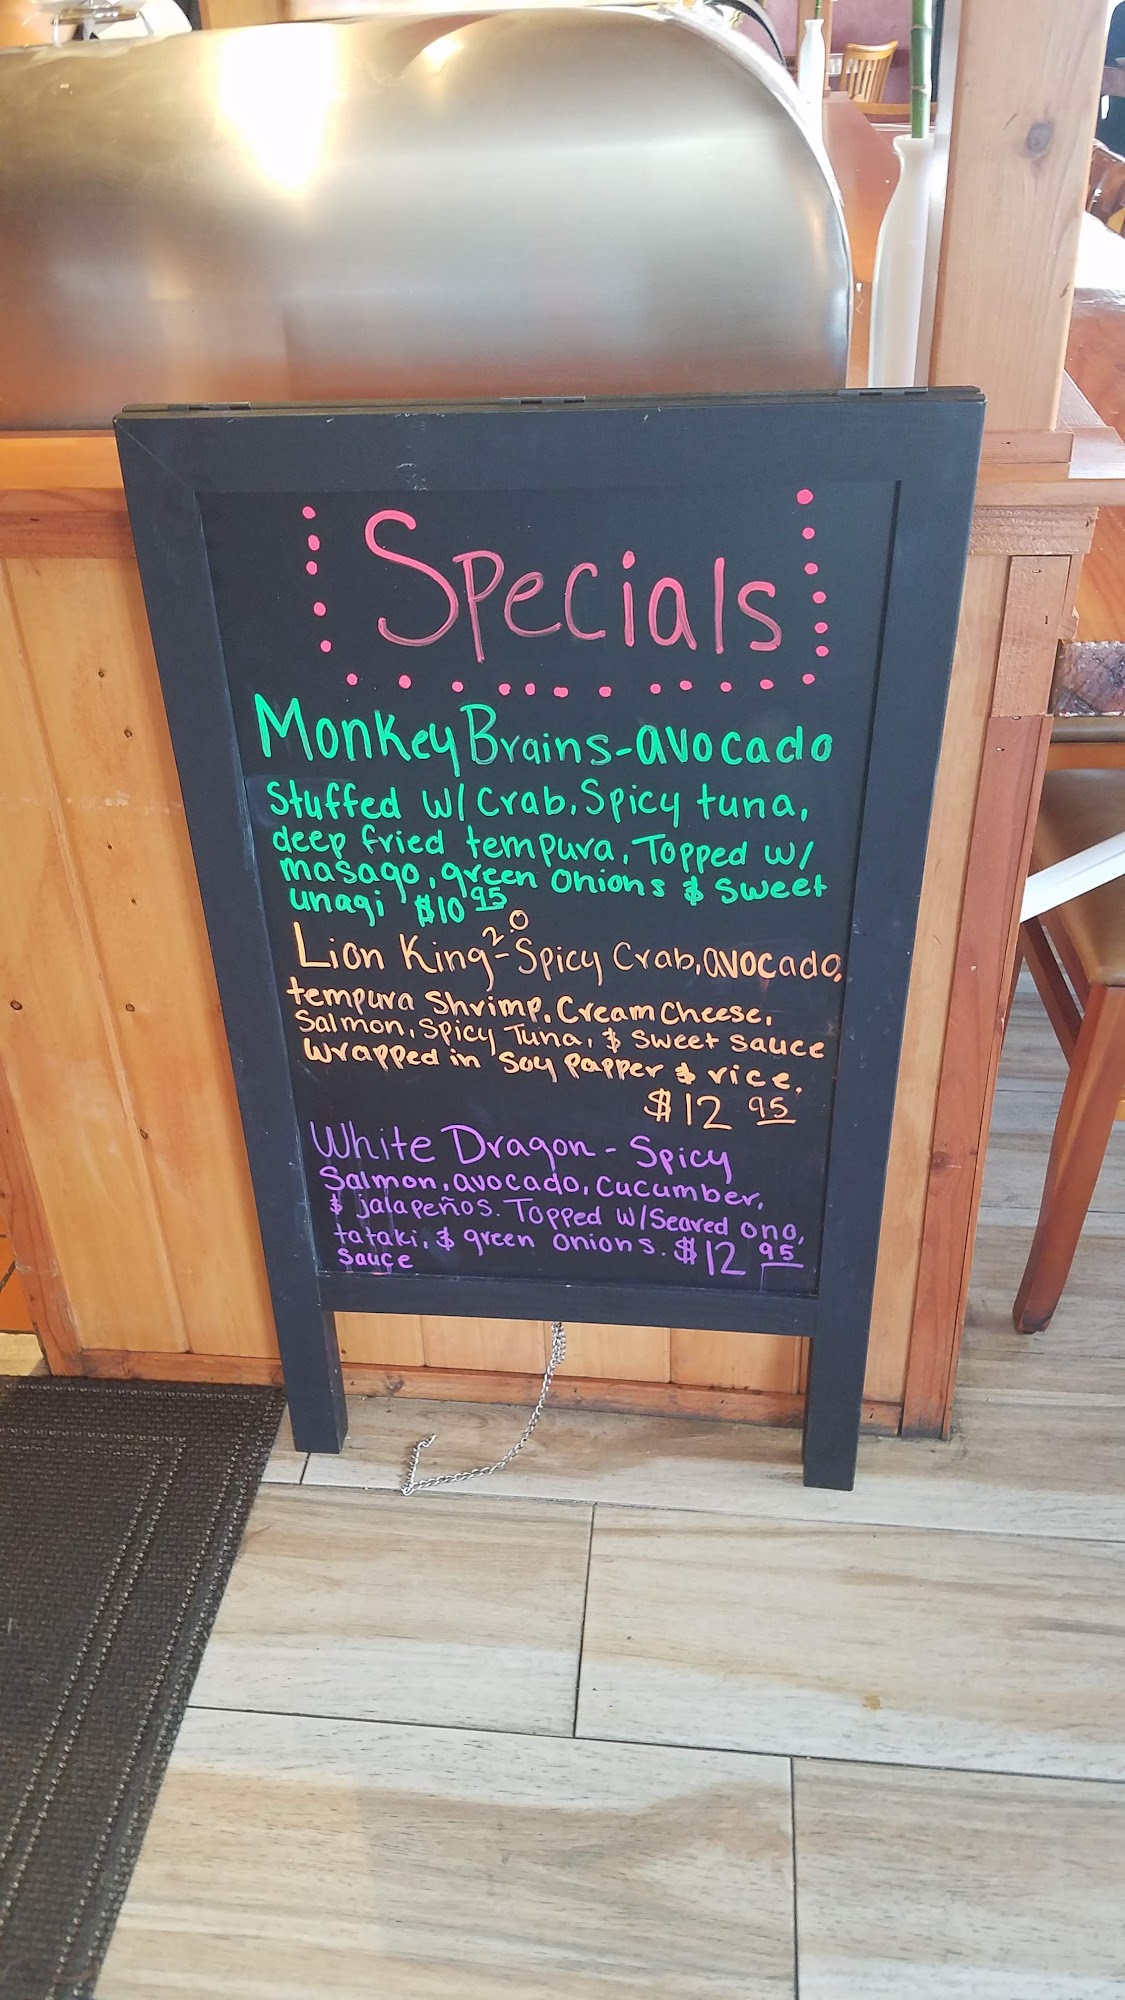 Specials
Monkey Brains-avocado
Stuffed w/ Crab, Spicy tuna,
deep fried tempura, Topped w/
masago, green onions & sweet
unagi $10 95
Lion King 2.0 - Spicy Crab, avocado,
tempura Shrimp, Cream Cheese,
Salmon, Spicy Tuna, & sweet sauce
wrapped in soy papper & rice.
$12 95
White Dragon - Spicy
Salmon, avocado, cucumber,
& jalapeños. Topped w/Seared ono,
tataki, & green onions. $12 95
sauce